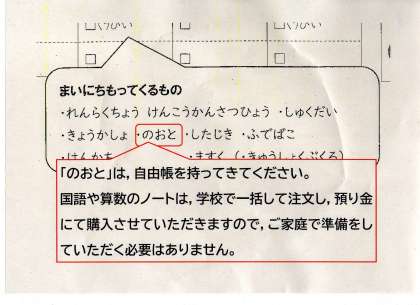 まいにちもってくるもの
・れんらくちょう けんこうかんさつひょう ・しゅくだい
・きょうかしょ ・のおと ・したじき ・ふでばこ
ますく (・きゅうしょくぶくろ)
「のおと」は,自由帳を持ってきてください。
国語や算数のノートは,学校で一括して注文し,預り金
にて購入させていただきますので,ご家庭で準備をし
ていただく必要はありません。